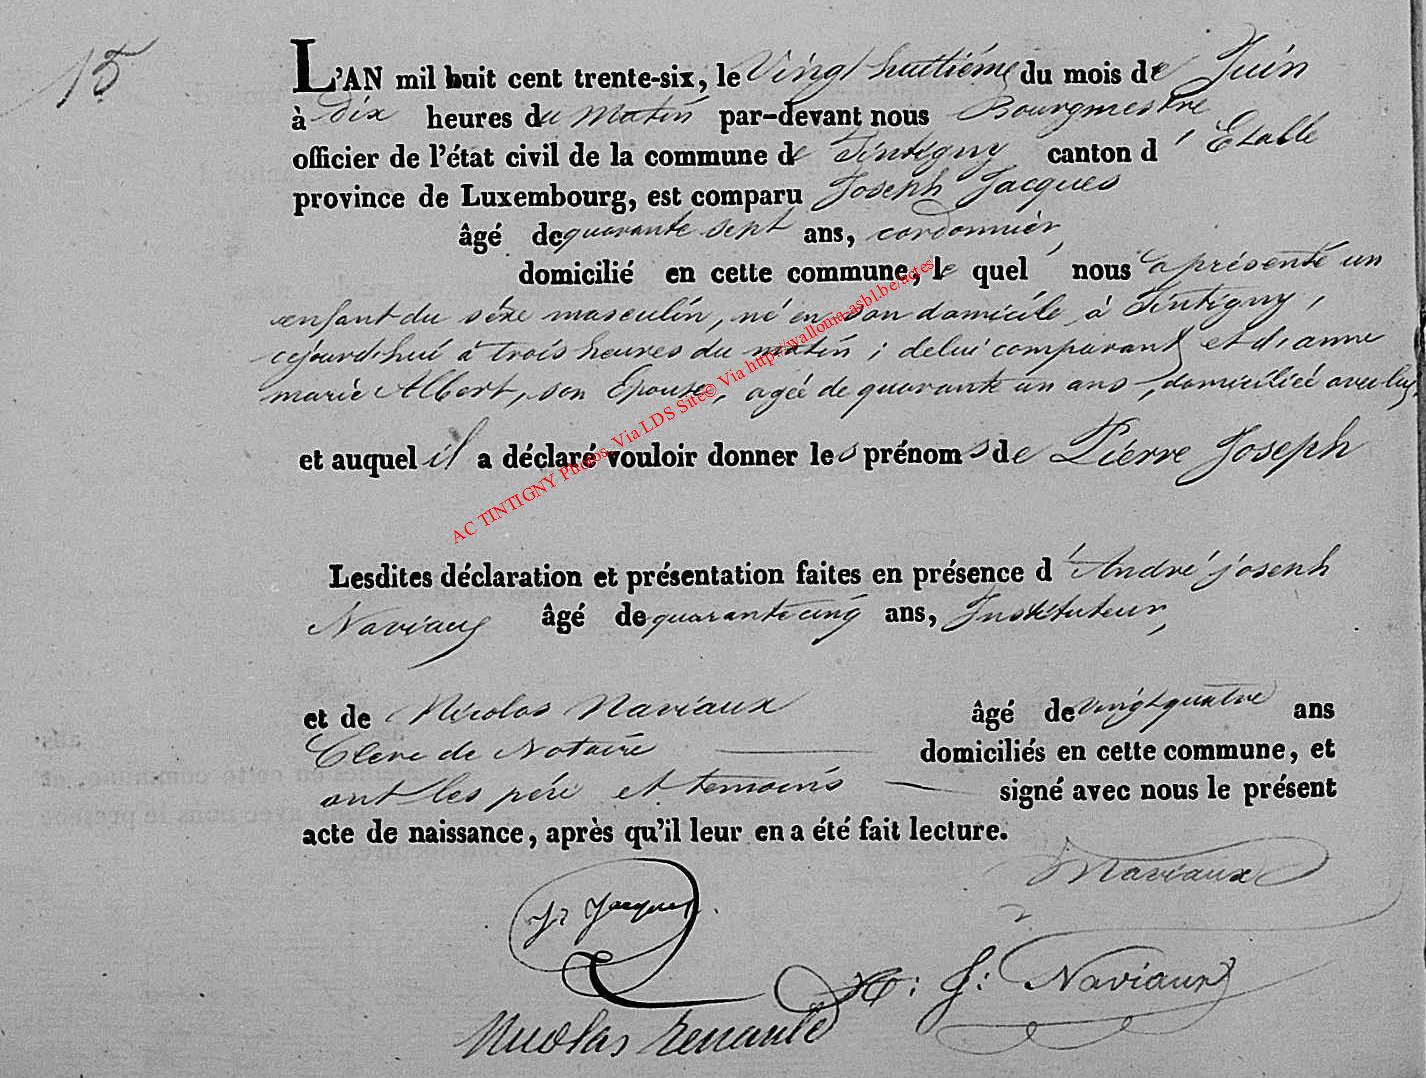 15
L'AN mil huit cent trente-six, le Vingt huitième du mois de Juin
à dix heures du Matin par-devant nous Bourgmestre
officier de l'état civil de la commune de Tintigny canton d'Etalle
province de Luxembourg, est comparu Joseph Jacques
âgé de quarante sept ans, cordonnier,
domicilié en cette commune, le quel nous a présenté un
enfant du séxe masculin, né en son domicile à Tintigny,
cejourd'hui à trois heures du matin ; delui comparant et d'anne
marie Albert, son Epouse, agée de quarante un ans, domiciliée avec luy
et auquel il a déclaré vouloir donner les prénoms de Pierre Joseph
Lesdites déclaration et présentation faites en présence d'André joseph
Naviaux âgé de quarante cinq ans, Instituteur,
et de Nicolas Naviaux âgé de vingt quatre ans
Clerc de Notaire domiciliés en cette commune, et
ont les père et temoins signé avec nous le présent
acte de naissance, après qu'il leur en a été fait lecture.
Naviaux
Jh Jacques
A: J: Naviaux
Nicolas Renauld
AC TINTIGNY Photos Via LDS Site© Via http://wallonia-asbl.be/actes/